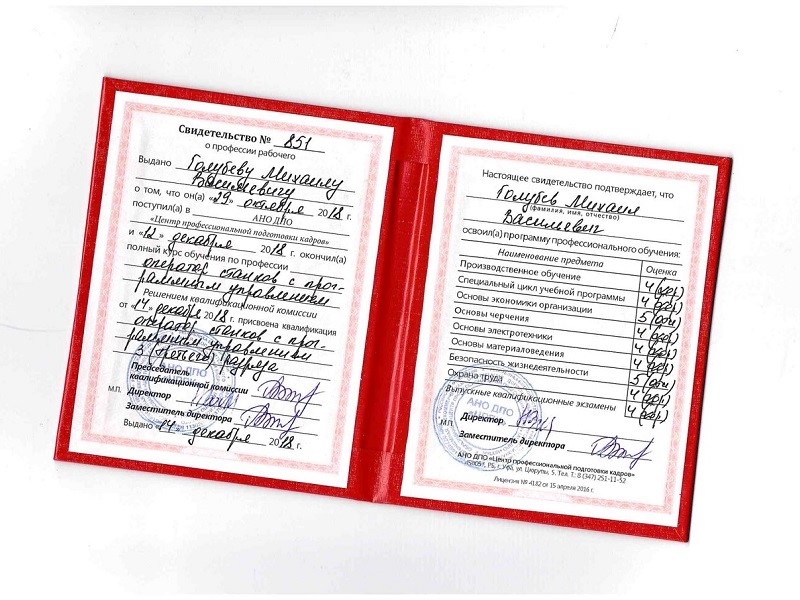 Свидетельство № 851
о профессии рабочего
Выдано Голубеву Михаилу
Васильевичу
о том, что он(а) «29» октября 2018 г.
поступил(а) в АНО ДПО
«Центр профессиональной подготовки кадров»
и «12» декабря 2018 г. окончил(а)
полный курс обучения по профессии
оператор станков с прог-
раммным управлением
Решением квалификационной комиссии
от «14» декабря 2018 г. присвоена квалификация
оператор станков с прог-
раммным управлением
3 (третьего) разряда
Председатель
квалификационной комиссии
М.П. Директор
Заместитель директора
Выдано «14» декабря 2018 г.
Настоящее свидетельство подтверждает, что
Голубев Михаил
(фамилия, имя, отчество)
Васильевич
освоил(а) программу профессионального обучения:
Наименование предмета Оценка
Производственное обучение 4 (хор.)
Специальный цикл учебной программы 4 (хор.)
Основы экономики организации 4 (хор.)
Основы черчения 5 (отл.)
Основы электротехники 4 (хор.)
Основы материаловедения 4 (хор.)
Безопасность жизнедеятельности 4 (хор.)
Охрана труда 5 (отл.)
4 (хор.)
Выпускные квалификационные экзамены 4 (хор.)
АНО ДПО
МП Директор
Заместитель директора
АНО ДПО «Центр профессиональной подготовки кадров»
450057, РБ, г. Уфа, ул. Цюрупы, 5, Тел. Т.: 8 (347) 251-11-52
Лицензия № 4182 от 15 апреля 2016 г.